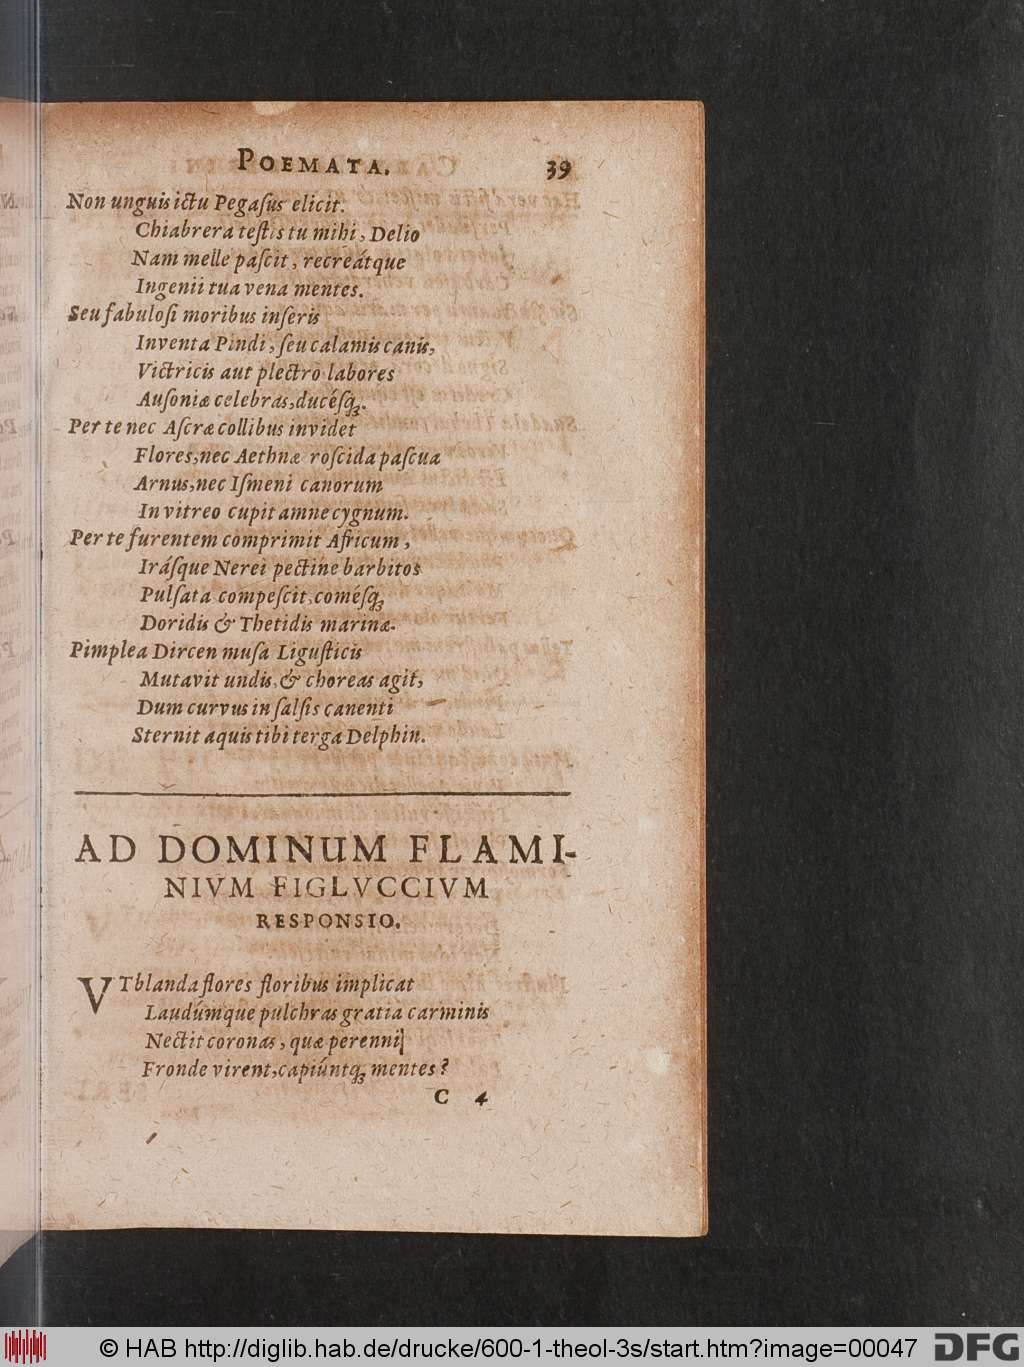 POEMATA. 39
Non unguis ictu Pegaſus elicit.
Chiabrera teſtis tu mihi, Delio
Nam melle paſcit, recreátque
Ingenii tua vena mentes.
Seu fabuloſi moribus inſeris
Inventa Pindi, ſeu calamis canis,
Victricis aut plectro labores
Auſoniæ celebras, ducéſqꝫ.
Per te nec Aſcræ collibus invidet
Flores, nec Aethnæ roſcida paſcua
Arnus, nec Iſmeni canorum
In vitreo cupit amne cygnum.
Per te furentem comprimit Africum,
Iráſque Nerei pectine barbitos
Pulſata compeſcit, coméſqꝫ
Doridis & Thetidis marinæ.
Pimplea Dircen muſa Liguſticis
Mutavit undis, & choreas agit,
Dum curvus in ſalſis canenti
Sternit aquis tibi terga Delphin.
AD DOMINUM FLAMI-
NIVM FIGLVCCIVM
RESPONSIO.
VT blanda flores floribus implicat
Laudúmque pulchras gratia carminis
Nectit coronas, quæ perenni
Fronde virent, capiúntqꝫ mentes?
C 4
© HAB http://diglib.hab.de/drucke/600-1-theol-3s/start.htm?image=00047 DFG